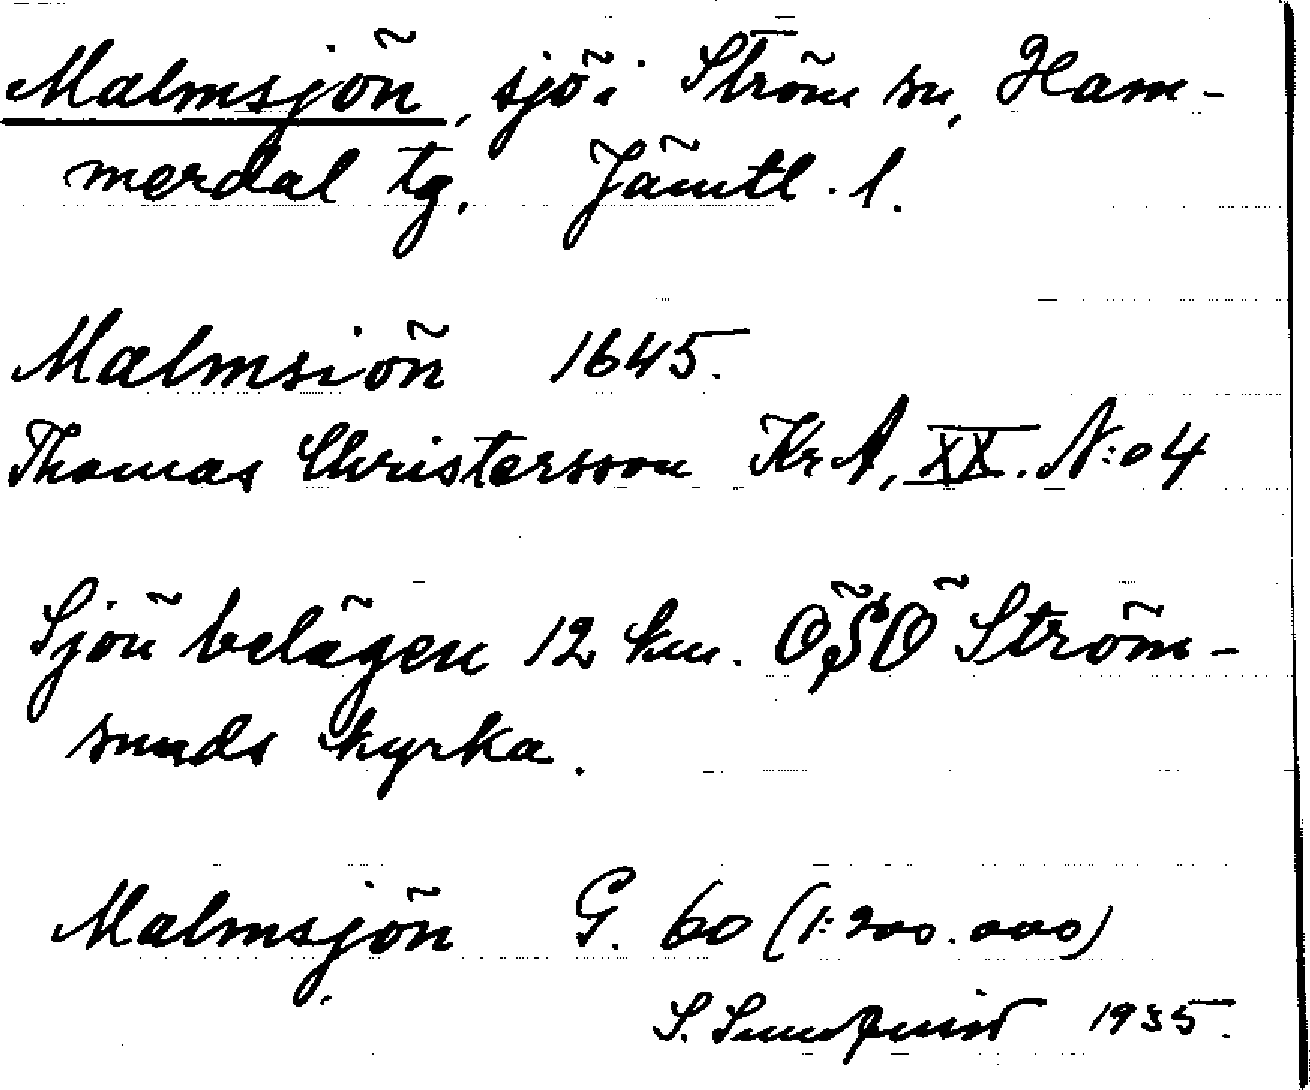 Malmsjön, sjö i Ström sn, Ham-
merdal tg. Jämtl. l.
Malmsiön 1645.
Thomas Christersson Kr A, XX. N:o 4
Sjön belägen 12 km. OSO Ström-
sunds kyrka.
Malmsjön G. 60 (1:200.000)
S. 1935.